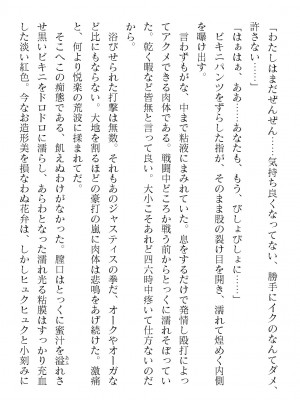 「わたしはまだぜんぜん……気持ち良くなってない、勝手にイクのなんてダメ、
許さない……」
「はぁはぁ、ああ……あなたも、もう、びしょびしょに……」
ビキニパンツをずらした指が、そのまま股の裂け目を開き、濡れて煌めく内側
を曝け出す。
言わずもがな、中まで粘液にまみれていた。息をするだけで発情し殴打によっ
てアクメできる肉体である。戦闘中どころか戦う前からとっくに濡れそぼってい
た。乾く暇など皆無と言って良い。大小こそあれど四六時中疼いて仕方ないのだ
から。
浴びせられた打撃は無数。それもあのジャスティスの拳だ、オークやオーガな
ど比にもならない。大地を割るほどの豪打の嵐に肉体は悲鳴をあげ続けた。激痛
と、何より悦楽の荒波に揉まれてだ。
そこへこの痴態である、飢えぬわけがなかった。膣口はとっくに蜜汁を溢れさ
せ黒いビキニをドロドロに濡らし、あらわとなった濡れ光る粘膜はすっかり充血
した淡い紅色。今なお造形美を損なわぬ花弁は、しかしヒュクヒュクと小刻みに